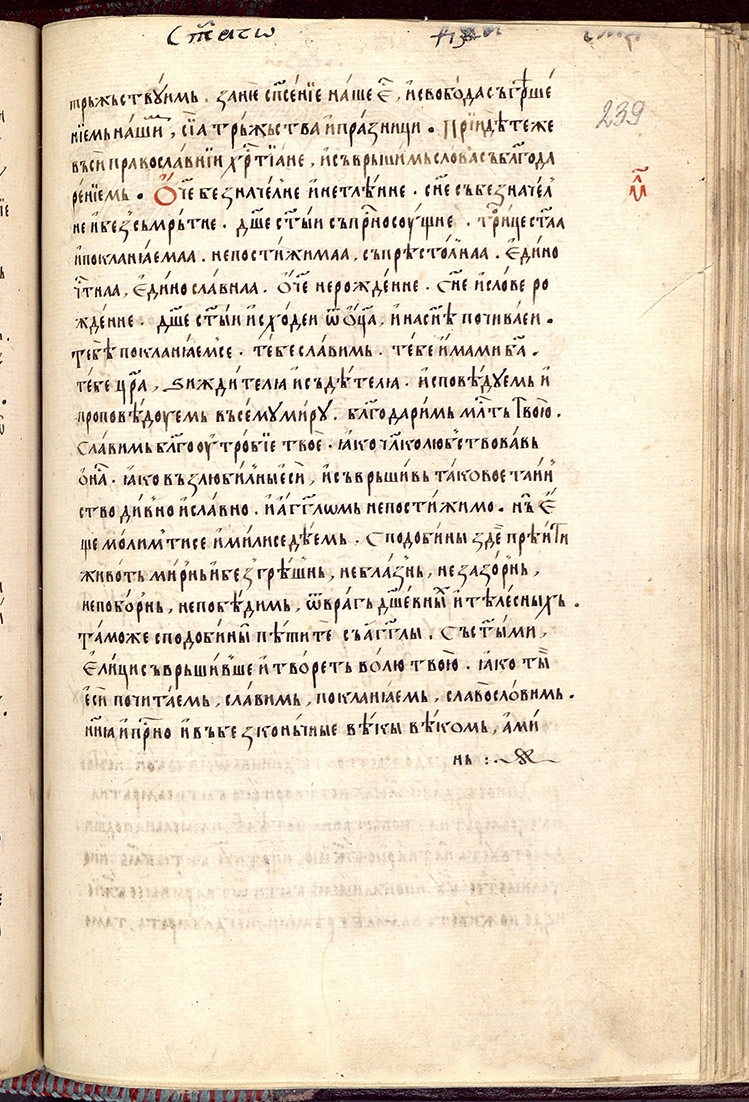 ст҃аго
239
трьжьствꙋимь. зане сп҃сенїе наше е҆, и҆ свобода съгрѣше
нїемь нашимь, сїа трьжьства и҆ празници. Прїидѣте же
въси православнїи хр҃тїане, и҆ съвръшимь слова съ бл҃года
ренїемь. Ѻ҆ч҃е безначелне и҆ нетлѣнне. сн҃е събезначел
м҃л
не и҆ безьсмрьтне. дш҃е ст҃ыи съприсносоущне. тр҃оице ст҃аа
и҆ покланꙗемаа. непостижимаа, съпрѣстолнаа. Е҆дино
чⷭтнаа, е҆динославнаа. Ѻ҆ч҃е нерожденне. Сн҃е и҆ слове ро
жденне. дш҃е ст҃ыи и҆сходеи ѿ ѻ҆ц҃а, и҆ на сн҃ѣ почиваеи.
тебѣ покланꙗемсе. тебе славимь. тебе и҆мами б҃а.
тебе цр҃а, ꙁиждителꙗ и҆ съдѣтелꙗ. и҆споведꙋемь и҆
проповѣдоуемь въсемꙋ мирꙋ. благодаримь млⷭть твою.
Славимь бл҃гооутробїе твое. ꙗко чл҃колюбьствовавь
ѻ҆на. ꙗко възлюбилны е҆си, и҆ съвръшивь таковое таин
ство дивно и҆ славно. и҆ а҆гг҃ломь непостижимо. нь е҆
ще молимтисе и҆ милисе дѣемь. Сподобины зде прѣити
животь мирнь и҆ безгрѣшнь, неблазнь, незазорнь,
непоборнь, непобѣдимь, ѿ врагь дш҃евныⷯ и҆ тѣлесныхь.
таможе сподобины пѣтите съ а҆гг҃лы. Съ ст҃ыми,
е҆лици съвръшивше и҆ твореть волю твою. ꙗко ты
е҆си почитаемь, славим, покланꙗемь,славословимь.
нн҃ꙗ и҆ прⷭно и҆ въ безконьчные вѣкы вѣкомь, а҆ми
нь :